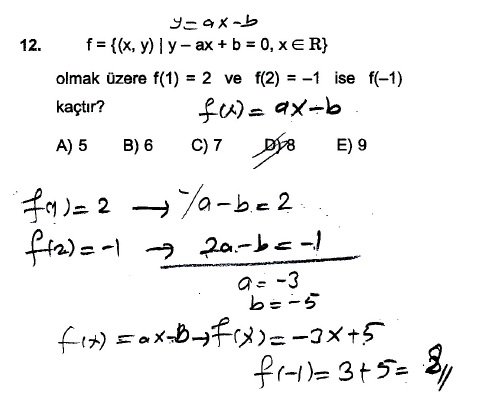 y=ax-b
12. f = {(x, y) | y – ax + b = 0, x ∈ R}
olmak üzere f(1) = 2 ve f(2) = –1 ise f(–1)
kaçtır? f(x) = ax-b
A) 5 B) 6 C) 7 D) 8 E) 9
f(1) = 2 → -/a-b=2
f(2) = -1 → 2a-b=-1
a=-3
b=-5
f(x) = ax-B→f(x)=-3x+5
f(-1)=3+5=8//